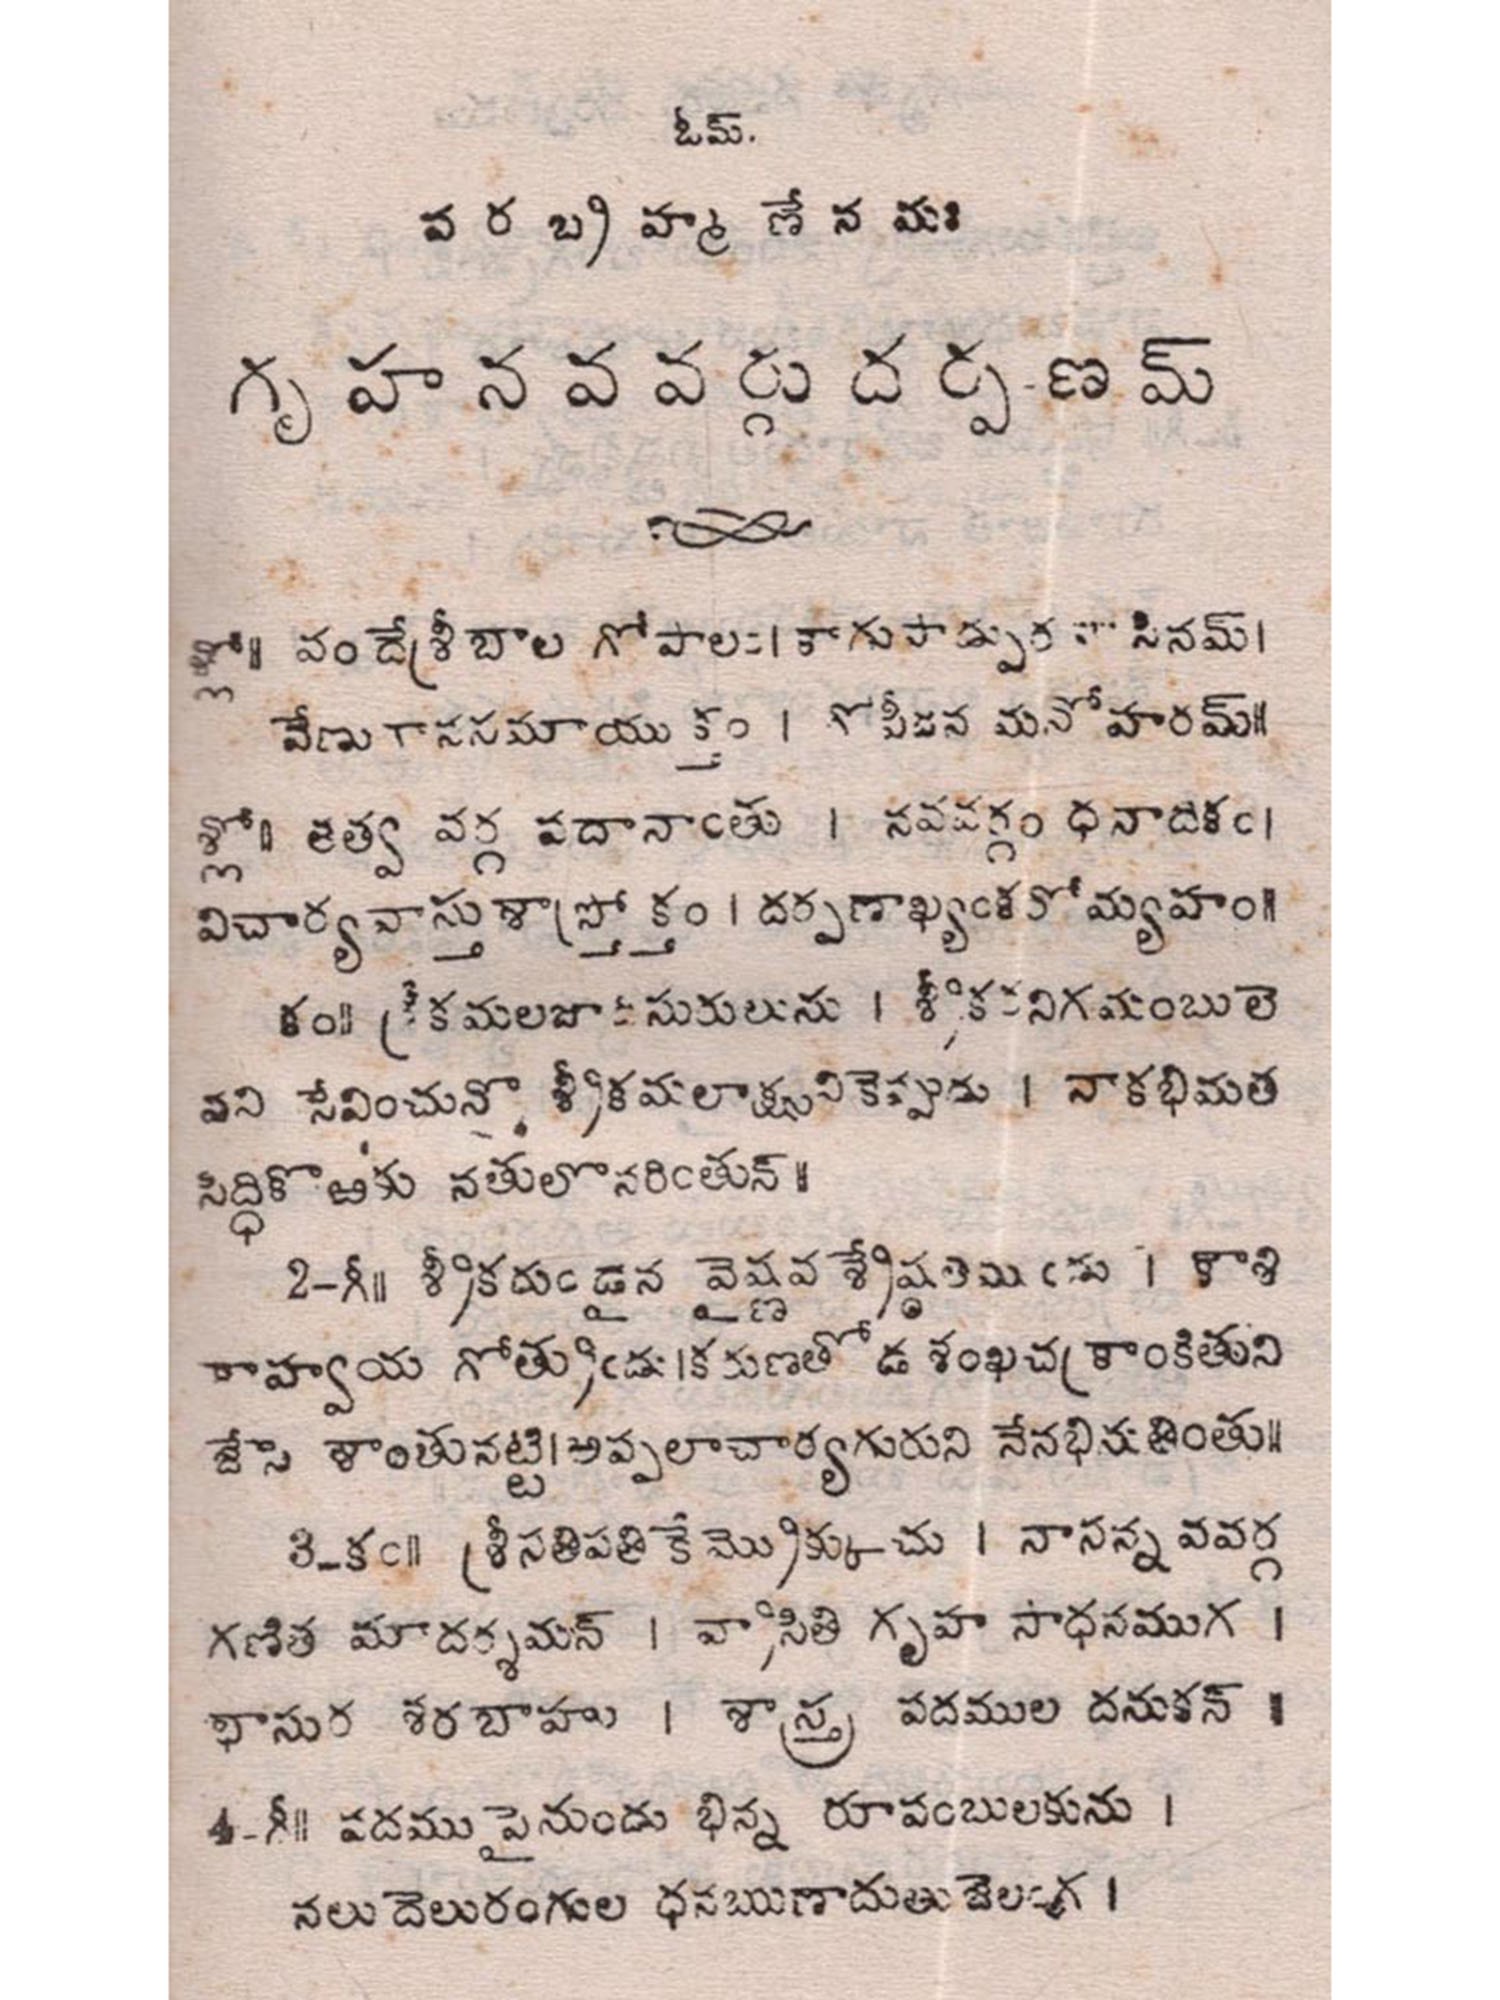 ఓమ్.
పరబ్రహ్మణేనమః
గృహనవవర్గుదర్పణమ్
శ్లో॥ వందేశ్రీబాల గోపాలః।కాగుపాడ్పుర సినమ్।
వేణు గానసమాయుక్తం । గోపీజన మనోహరమ్॥
శ్లో॥ తత్వ వర్గ పదానాఁతు । నవవర్గం ధనాదికఁ।
విచార్యవాస్తుశాస్త్రోక్తం । దర్పణాఖ్యఁకరోమ్యహం॥
కం॥ సురులును । నిగమంబులె
వని సేవించునో శ్రీకమలాక్షునికెప్పుడు । నాకభిమత
సిద్ధికొఱకు నతులొనరిఁతున్॥
2-గీ॥ శ్రీకరుఁడైన వైష్ణవ । కాశి
కాహ్వయ గోత్రుఁడు।కరుణతోడ శంఖచక్రాంకితుని
జేసె శాంతునట్టి।అప్పలాచార్యగురుని నేనభినుతింతు॥
3-కఁ॥ శ్రీసతిపతికే మ్రొక్కుచు । నాసన్న వవర్గ
గణిత మాదర్శమన్ । వ్రాసితి గృహ సాధనముగ ।
భాసుర శరబాహు । శాస్త్ర పదముల దనుకన్ ॥
4-గీ॥ పదముపైనుండు భిన్న రూపంబులకును ।
నలుదెలురంగుల ధనఋణాదుతు ।